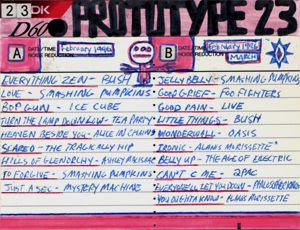 23DK PROTOTYPE 23
D60
A DATE/TIME February 1996
NOISE REDUCTION
B DATE/TIME February 1996
NOISE REDUCTION MARCH
EVERYTHING ZEN - BUSH
LOVE - SMASHING PUMPKINS
BOP GUN - ICE CUBE
TURN THE LAMP DOWN LOW - TEA PARTY
HEAVEN BESIDE YOU - ALICE IN CHAINS
SCARED - THE TRAGICALLY HIP
HILLS OF GLENORCHY - ASHLEY MACISAAC
TO FORGIVE - SMASHING PUMPKINS
JUST A SEC - MYSTERY MACHINE
JELLYBELLY - SMASHING PUMPKINS
GOOD GRIEF - FOO FIGHTERS
GOOD PAIN - LIVE
LITTLE THINGS - BUSH
WONDERWALL - OASIS
IRONIC - ALANIS MORISSETTE
BELLY UP - THE AGE OF ELECTRIC
CAN'T C ME - 2PAC
EVERYONE'LL LET YOU DOWN - PHILOSOPHER KINGS
YOU OUGHTA KNOW - ALANIS MORISSETTE